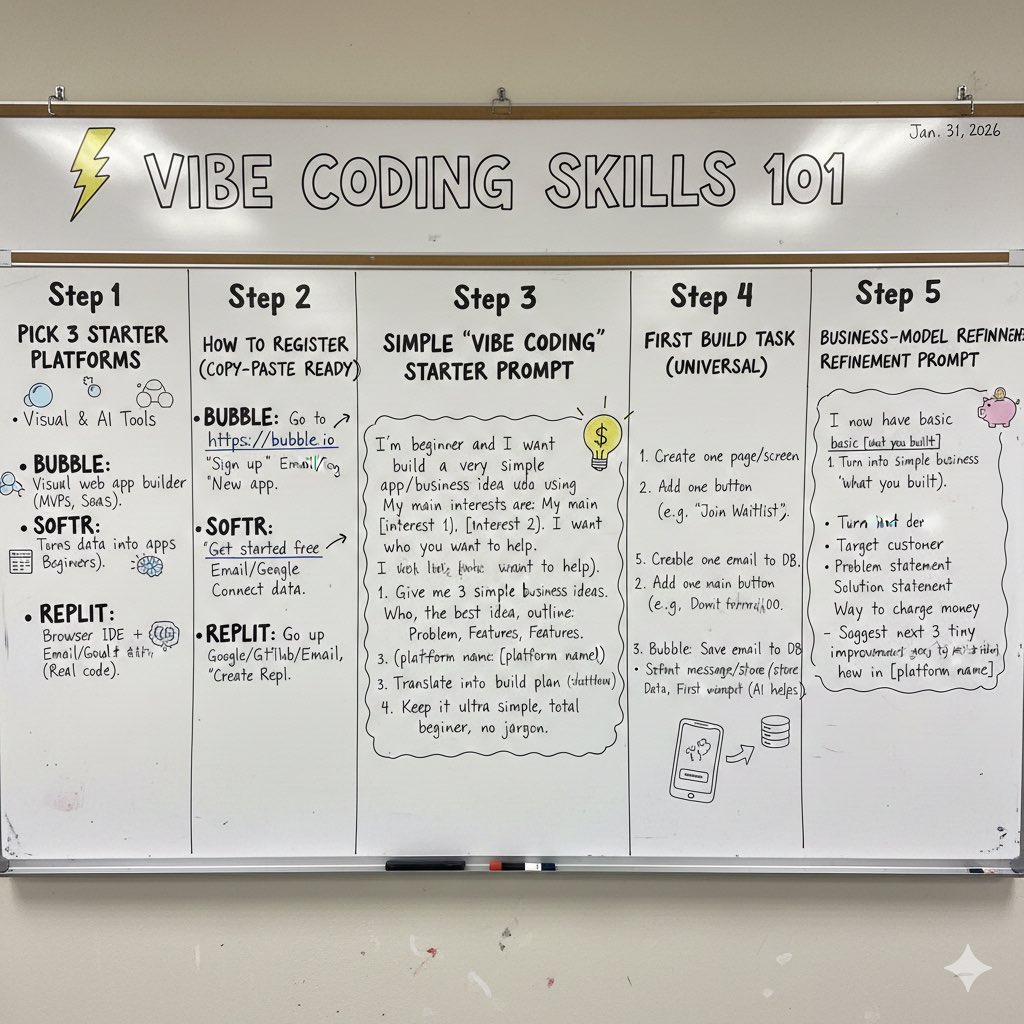 Jan. 31, 2026
VIBE CODING SKILLS 101
Step 1
PICK 3 STARTER
PLATFORMS
• Visual & AI Tools
• BUBBLE:
Visual web app builder
(MVPS, SaaS).
• SOFTR:
data into apps
Beginers).
• REPLIT:
Browser IDE +
(Real code).
Step 2
HOW TO REGISTER
(COPY-PASTE READY)
• BUBBLE: Go to
https://bubble.io
"Sign up"
"New app.
• SOFTR:
"Get started free
Email/Geagle
Connect data.
• REPLIT: Go up
"Create Repl.
Step 3
SIMPLE "VIBE CODING"
STARTER PROMPT
$
I'm beginner and I want
build a very simple
app/business idea using
My main interests are: My main
[interest 1), [Interest 2). I want
who you want to help.
I want to help).
1. Give me 3 simple business ideas.
Who, the best idea, outline:
Problem, Features, Features.
3. (platform name: [platform name))
3. Translate into build plan
4. Keep it ultra simple, total
beginer, no jargon.
Step 4
FIRST BUILD TASK
(UNIVERSAL)
1. Create one page/screen
2. Add one button
(e.g. "Join Waitlist",
5. Creble one email to DB.
2. Add one main button
(e.g.,
3. Bubble: Save email to DB
• message/store (store
Data, First (AI helps)
Step 5
BUSINESS-MODEL REFINNEN
REFINEMENT PROMPT
I now have basic
basic [what you built]
1. Turn into simple business
'what you built).
• Turn der
• Target customer
• Problem statement
Solution statement
Way to charge money
- Suggest next 3 tiny
how in [platform name]